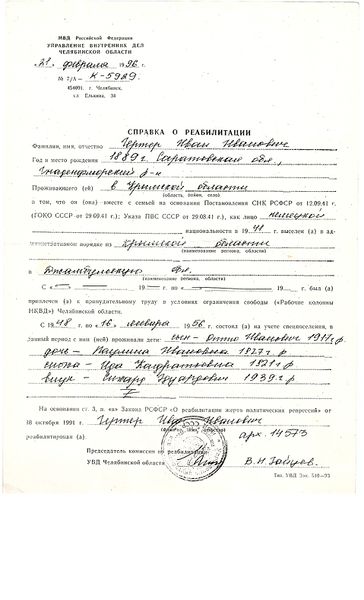 МВД Российская Федерация
УПРАВЛЕНИЕ ВНУТРЕННИХ ДЕЛ
ЧЕЛЯБИНСКОЙ ОБЛАСТИ
21 февраля 1996 г.
№ 7/Л- К-5929
454091. г. Челябинск,
ул. Елькина, 34
СПРАВКА О РЕАБИЛИТАЦИИ
Фамилия, имя, отчество Гертер Иван Иванович
Год и место рождения 1889 г. Саратовская обл.,
Гнаденфлюрский р-н
Проживающего (ей) в Крымской области
(область, район, село)
в том, что он (она) вместе с семьей на основании Постановления СНК РСФСР от 12.09.41 г.
(ГОКО СССР от 29.09.41 г.; Указа ПВС СССР от 29.08.41 г., как лицо немецкой
национальности в 1941 г. выселен (а) в ад-
министративном порядке из Крымской области
(наименование региона, области)
в Джамбульскую обл.
(наименование региона, области)
С « » 19 г. по « » 19 г. был (а)
привлечен (а) к принудительному труду в условиях ограничения свободы («Рабочие колонны
НКВД») Челябинской области.
С 1948 г. по «16» января 1956 г. состоял (а) на учете спецпоселения, в
данный период с ним (ней) проживали дети: сын - Отто Иванович 1911 г.р
дочь - Паулина Ивановна 1827 г р
сноха - Ида 1821 г р
внук - Эдуардович 1939 г. р
На основании ст. 3, п. «в» Закона РСФСР «О реабилитации жертв политических репрессий» от
18 октября 1991 г. Гертер Иван Иванович
(фамилия, имя, отчество)
реабилитирован (а). арх. 14573
Председатель комиссии по реабилитации
УВД Челябинской области В.Н Зайцев.
Тип. УВД Зак. 510—95